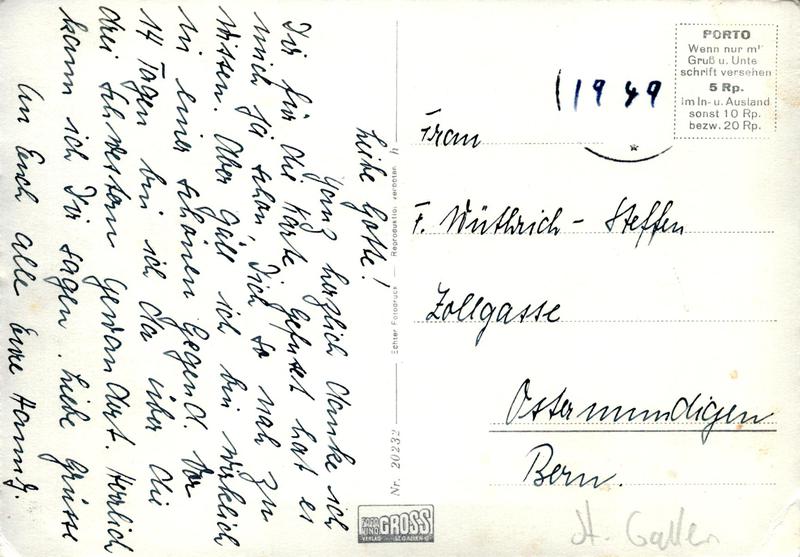 Liebe Gotte!
Ganz herzlich danke ich
Dir für die Karte. Gefreut hat es
mich ja schon, Dich so nah zu
wissen. Aber gäll ich bin wirklich
in einer schönen Gegend. Vor
14 Tagen bin ich da über die
drei Schwestern gewandert. Herrlich
kann ich Dir sagen. Liebe Grüsse
An Euch alle Eure
Echter Fotodruck — Reproduktion verboten
Nr. 20232
FOTO UND VERLAG GROSS ST. GALLEN
PORTO
Wenn nur m
Gruß u. Unte
schrift versehen
5 Rp.
im In- u. Ausland
sonst 10 Rp.
bezw. 20 Rp.
1949
Frau
F. Wüthrich - Steffen
Zollgasse
Ostermundigen
Bern.
St. Gallen